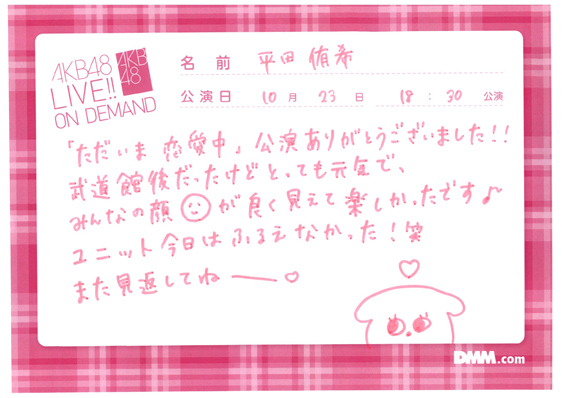 AKB48
LIVE!!
ON DEMAND
AKB
48
名前 平田侑希
公演日 10月23日 18:30 公演
「ただいま 恋愛中」公演ありがとうございました!!
武道館後だったけどとっても元気で、
みんなの顔が良く見えて楽しかったです♪
ユニット今日はふるえなかった!笑
また見返してねー♡
DMM.com